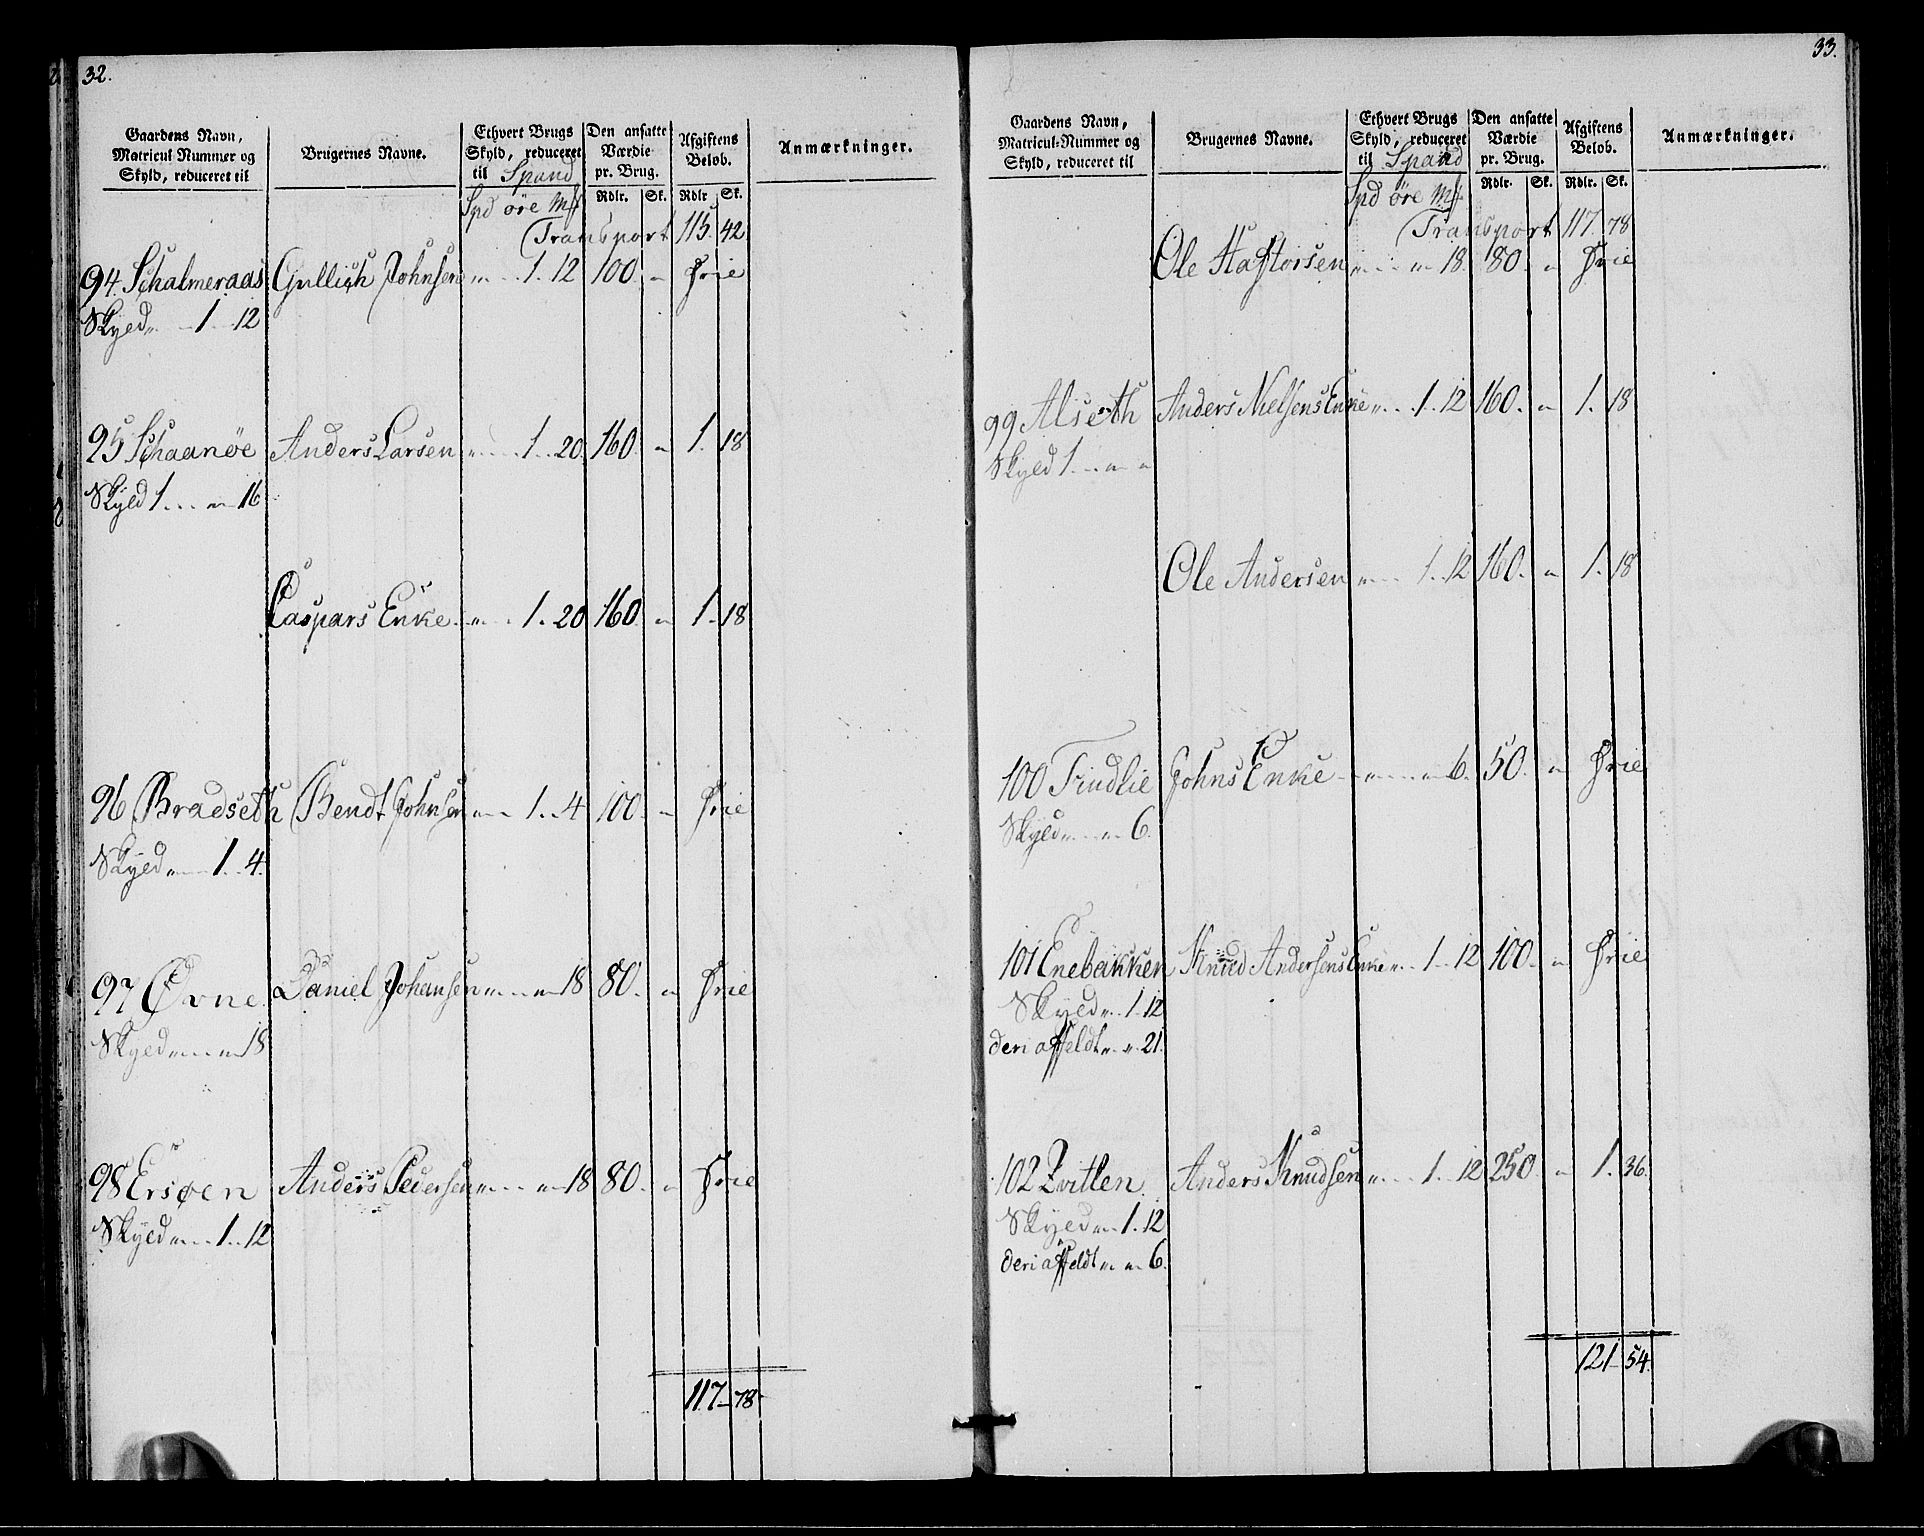 32.
Gaardens Navn, Matricul Nummer og Skyld, reduceret til | Brugernes Navne. | Ethvert Brugs Skyld, reduceret til Spand | Den ansatte Værdie pr. Brug. | Afgiftens Beløb. | Anmærkninger.
Spd øre Mk | Rdlr. | Sk. | Rdlr. | Sk.
Transport 115. 42
94. Schalmeraas Gullich Johnsen „ 1. 12 100. „ Frie
Skyld „ 1 12
95 Schaanøe Anders Larsen „ 1. 20 160. „ 1. 18
Skyld 1 „ 16
Caspars Enke „ 1. 20 160. „ 1. 18
96 Bradseth Bendt Johnsen „ 1. 4 100. „ Frie
Skyld „ 1. 4.
97 Øvne Daniel Johansen „ „ 18 80. „ Frie
Skyld „ „ 18
98 Ersøen Anders Pedersen „ „ 18 80. „ Frie
Skyld „ 1. 12
117 78
33.
Gaardens Navn, Matricul-Nummer og Skyld, reduceret til | Brugernes Navne. | Ethvert Brugs Skyld, reduceret til Spand | Den ansatte Værdie pr. Brug. | Afgiftens Beløb. | Anmærkninger.
Spd øre Mk | Rdlr. | Sk. | Rdlr. | Sk.
Transport 117. 78
Ole Haftorsen „ „ 18. 80. „ Frie
99 Alseth Anders Nielsens Enke „ 1. 12 160. „ 1. 18
Skyld 1 „ „
Ole Andersen „ 1. 12 160. „ 1. 18
100 Findlie Johns Enke „ „ 6. 50. „ Frie
Skyld „ „ 6.
101 Enebakken Knud Andersens Enke „ 1. 12 100. „ Frie
Skyld „ 1. 12
deri affeldt „ „ 21.
102 Qvitlen Anders Knudsen „ 1. 12 250. „ 1. 36.
Skyld „ 1. 12
deri affeldt „ „ 6.
121 54.